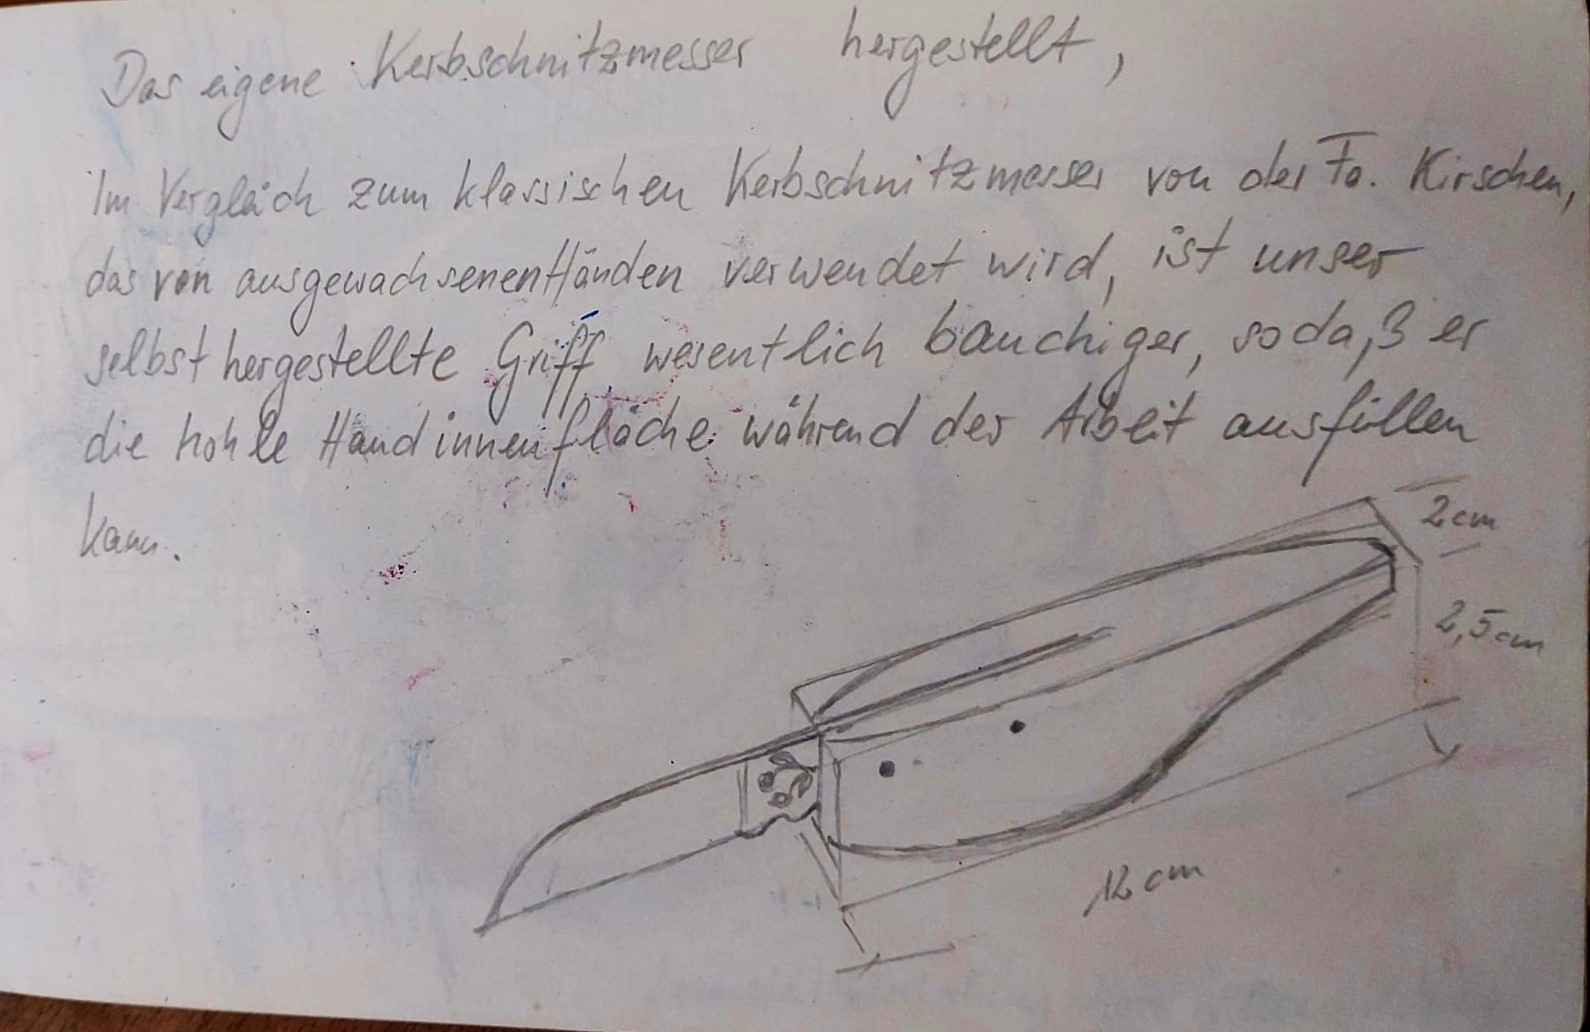 Das eigene Kerbschnitzmesser hergestellt,
Im Vergleich zum klassischen Kerbschnitzmesser von der Fa. Kirschen,
das von ausgewachsenen Händen verwendet wird, ist unser
selbst hergestellte Griff wesentlich bauchiger, sodaß er
die hohle Handinnenfläche während der Arbeit ausfüllen
kann.
2cm
2,5cm
12cm